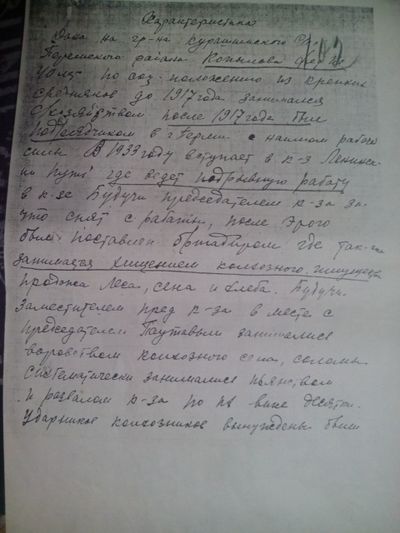 Характеристика
Дана на гр-на Курашимского с/с
Пермского района
по соц-положению из крепких
средняков до 1917 года занимался
с/хозяйством после 1917 года был
подрядчиком в г Перми с наймом рабоч
силы В 1933 году вступает в к-з Ленинск
ий путь где ведет подрывную работу
в к-зе Будучи председателем к-за за-
что снят с работы, после этого
был поставлен бригадиром где так-же
занимается хищением колхозного имущества
продажа леса, сена и хлеба. Будучи
заместителем пред к-за в месте с
председателем занимался
воровством колхозного сена, соломы
систематически занимался пьянством
и развалом к-за по их вине десятки
ударников колхозников вынуждены были